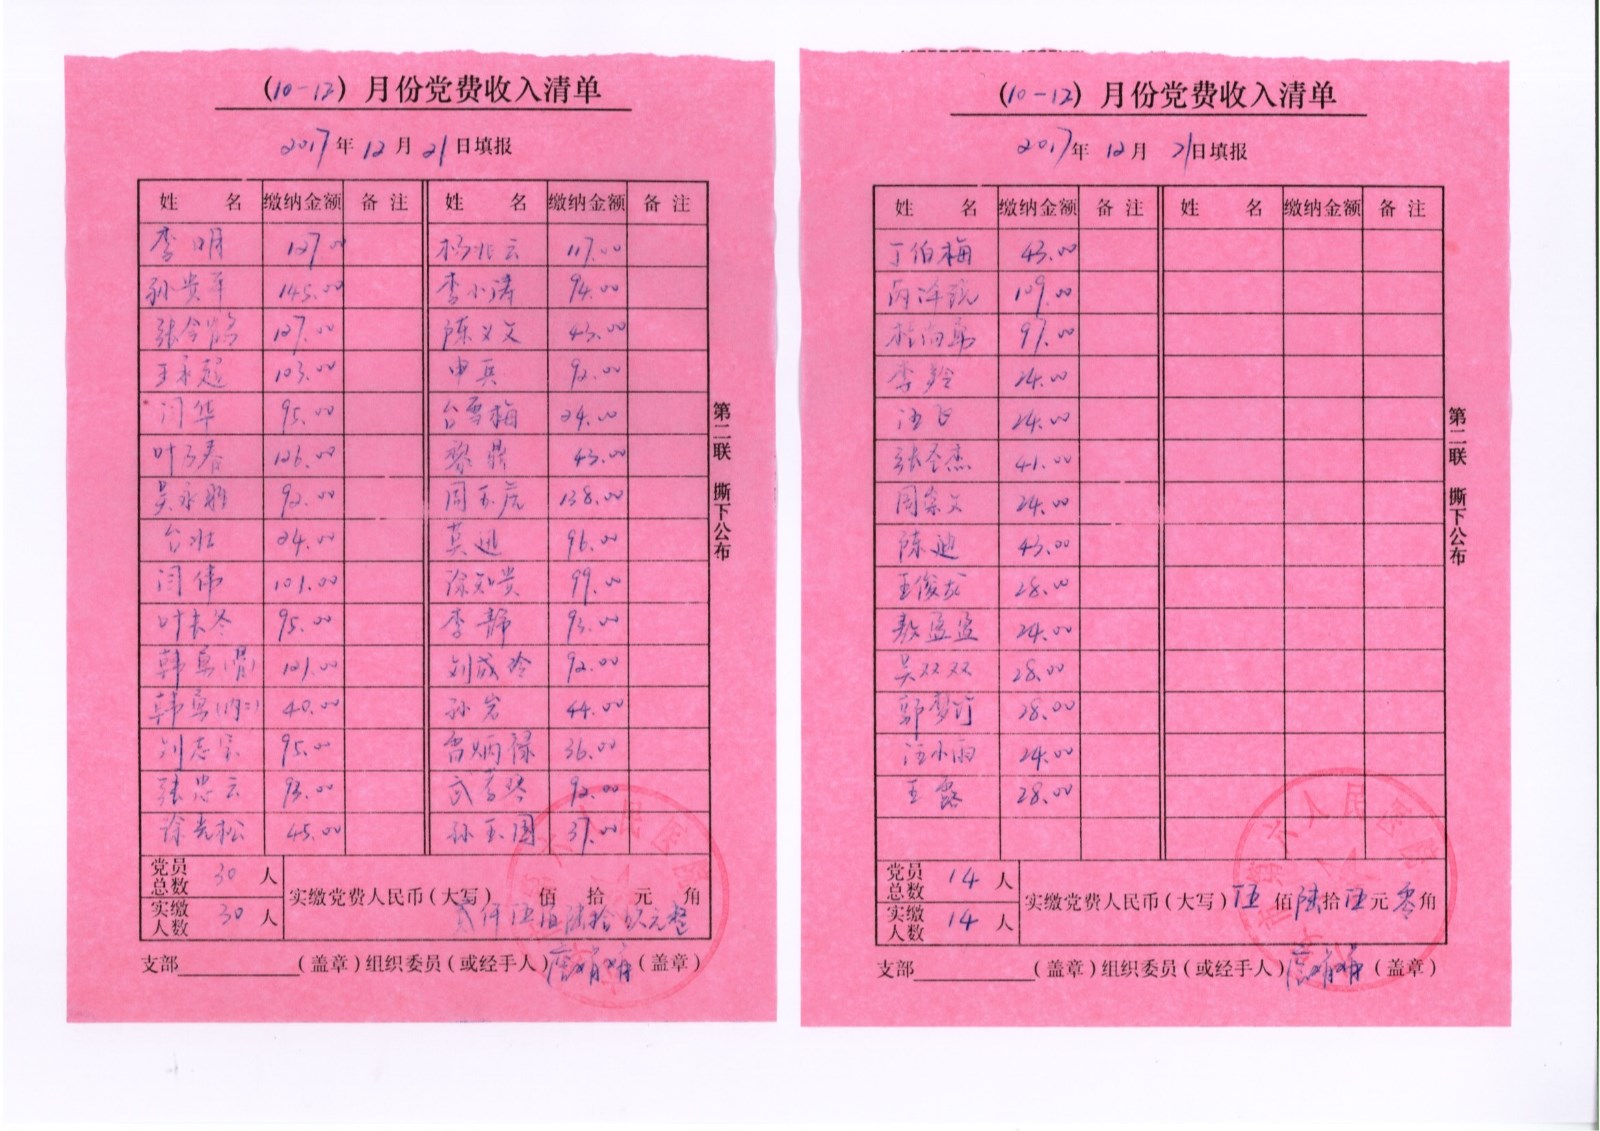 (10-12) 月份党费收入清单
2017年 12月 21日填报
姓 名 缴纳金额 备注 姓 名 缴纳金额 备注
李明 127.00 杨 云 117.00
孙贵军 145.00 李小涛 94.00
张令鹤 127.00 陈义文 43.00
王永超 103.00 申兵 92.00
闫华 95.00 台雪梅 24.00
叶乃春 126.00 黎鼎 43.00
吴永明 92.00 周玉虎 138.00
台壮 24.00 莫迅 96.00
闫伟 101.00 徐知贵 99.00
叶长冬 95.00 李静 93.00
韩勇(骨) 121.00 刘成玲 92.00
韩勇(内二) 40.00 孙岩 44.00
刘志宗 95.00 雷炳禄 36.00
张忠云 93.00 武 琴 92.00
徐光松 45.00 孙玉国 37.00
党员总数 30 人
实缴人数 30 人
实缴党费人民币(大写) 佰 拾 元 角
贰仟伍佰陆拾玖元整
支部 (盖章)组织委员(或经手人) (盖章)
第二联 撕下公布
(10-12) 月份党费收入清单
2017年 12月 21日填报
姓 名 缴纳金额 备注 姓 名 缴纳金额 备注
丁伯梅 43.00
109.00
97.00
李 24.00
汤飞 24.00
张 杰 41.00
周崇文 24.00
陈迪 43.00
王俊龙 28.00
敖孟孟 24.00
吴双双 28.00
郭梦 28.00
汪小雨 24.00
王露 28.00
党员总数 14 人
实缴人数 14 人
实缴党费人民币(大写) 伍佰陆拾伍元零角
支部 (盖章)组织委员(或经手人) (盖章)
第二联 撕下公布
六人民医院
六人民医院